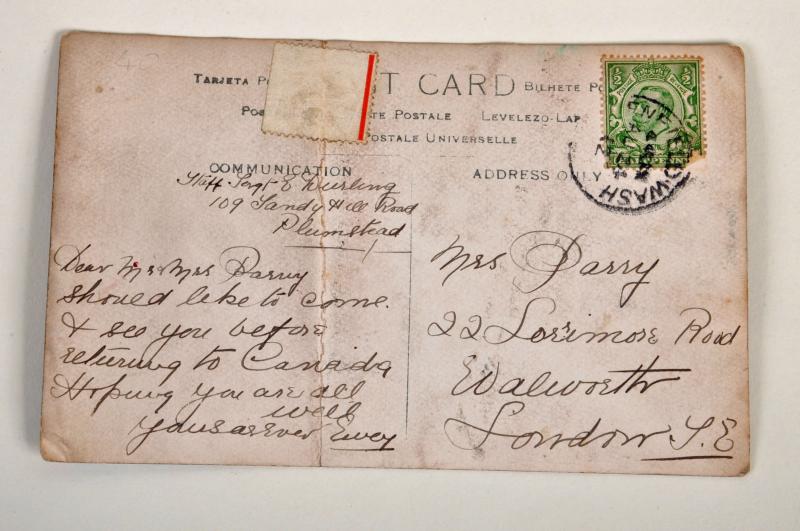 40
TARJETA PO ST CARD BILHETE PO
POS TE POSTALE LEVELEZO-LAP
POSTALE UNIVERSELLE
COMMUNICATION
ADDRESS ONLY
Staff Sergt E Durling
109 Sandy Hill Road
Plumstead
Dear Mr & Mrs Darry
should like to come
& see you before
returning to Canada
Hoping you are all
well
Yours as ever Ewey
½ ½
WASH
Mrs. Darry
22 Lorrimore Road
Walworth
London S.E